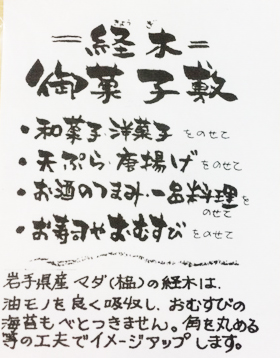 きょうぎ
=経木=
御菓子敷
・和菓子・洋菓子をのせて
・天ぷら・唐揚げをのせて
・お酒のつまみ・一品料理をのせて
・お寿司やおむすびをのせて
岩手県産マダ(榀)の経木は、
油モノを良く吸収し、おむすびの
海苔もべとつきません。角を丸める
等の工夫でイメージアップします。